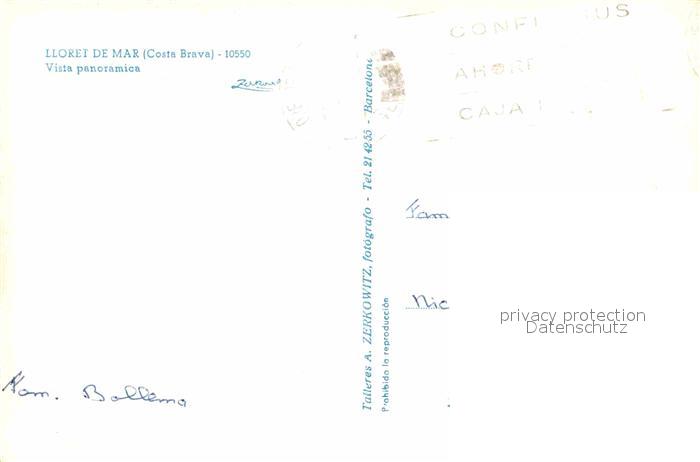 LLORET DE MAR (Costa Brava) - 10550
Vista panoramica
CONFI US
AHORR
CAJA
Talleres A. ZERKOWITZ, fotógrafo - Tel. 21 42 55 - Barcelona
Prohibida la reproducción
Fam
Nic
privacy protection
Datenschutz
Fam. Bollema